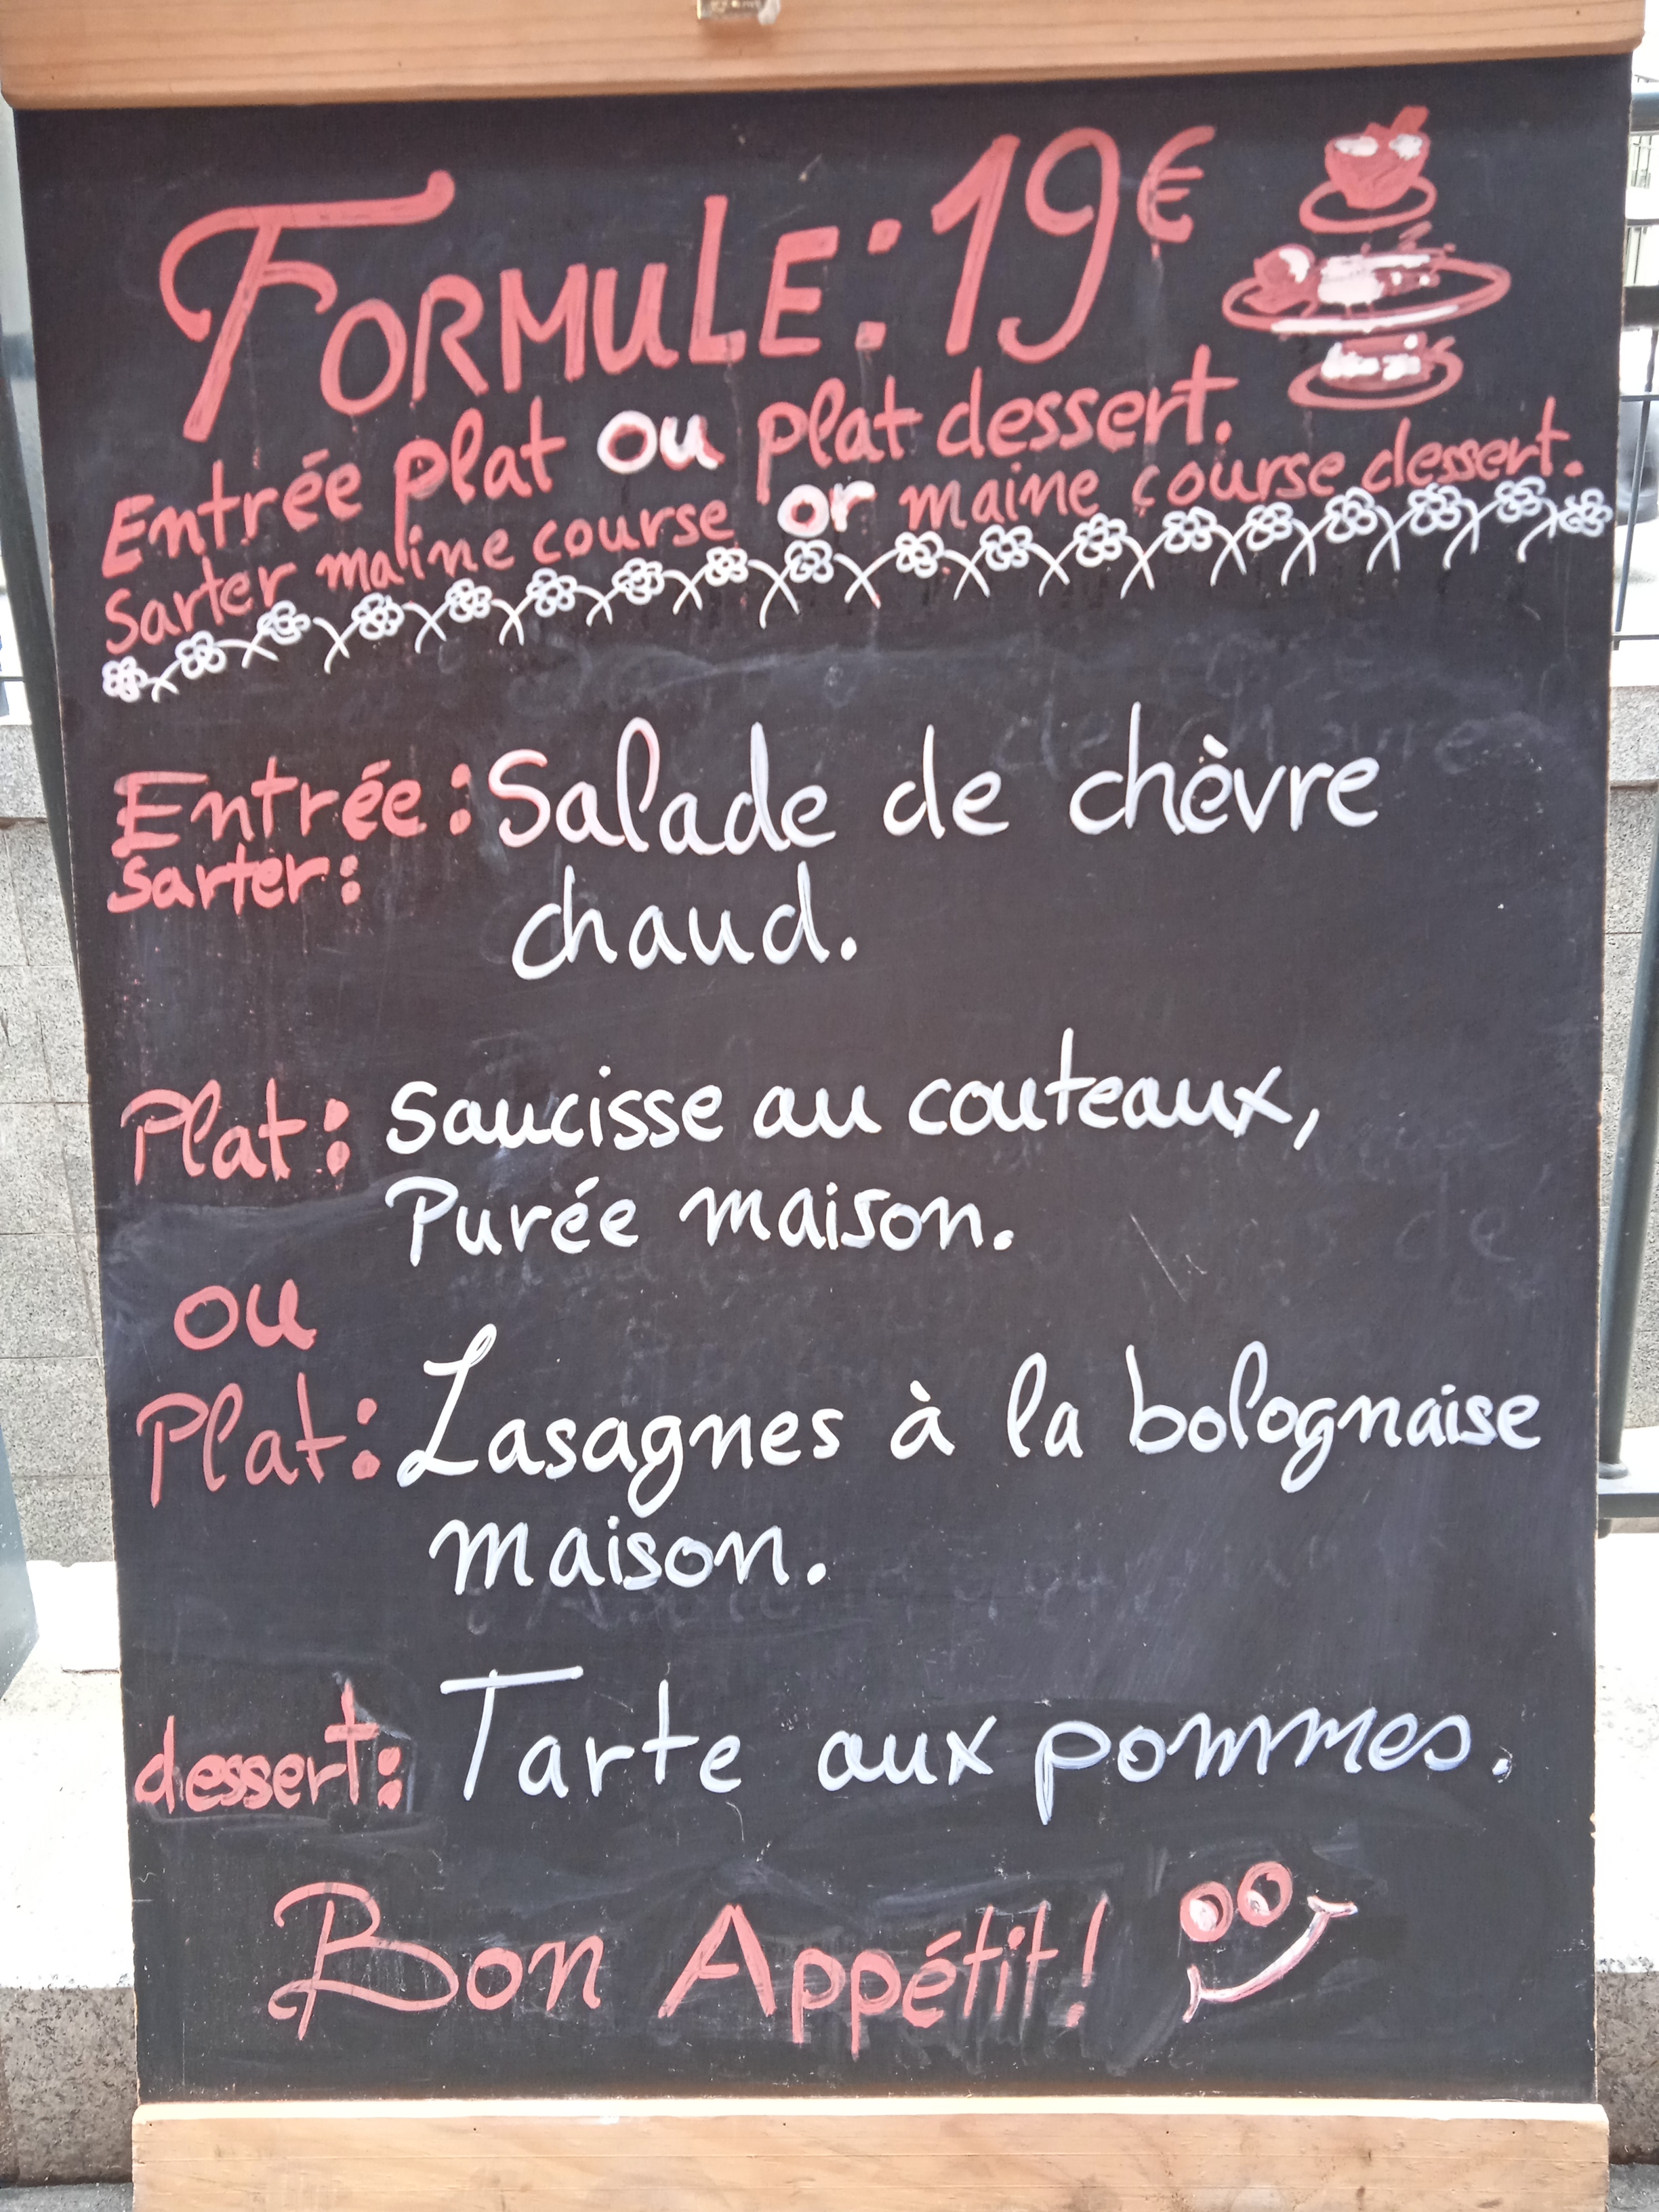 FORMULE: 19€
Entrée plat ou plat dessert.
Sarter maine course or maine course dessert.
Entrée: Salade de chèvre
Sarter:
chaud.
Plat: Saucisse au couteaux,
Purée maison.
ou
Plat: Lasagnes à la bolognaise
maison.
dessert: Tarte aux pommes.
Bon Appétit!